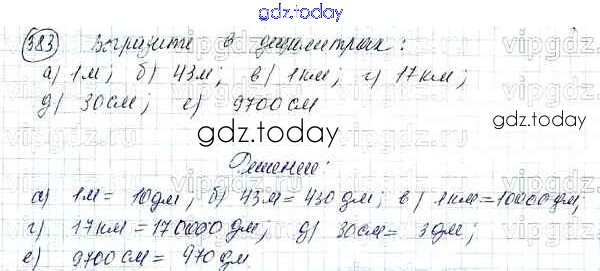 gdz.today
383 Выразите в дециметрах:
а) 1м; б) 43м; в) 1км; г) 17км;
д) 30см; е) 9700см
gdz.today
Решение:
а) 1м = 10дм; б) 43м = 430дм; в) 1км = 10000дм;
г) 17км = 170000дм; д) 30см = 3дм;
е) 9700см = 970дм
gdz.today